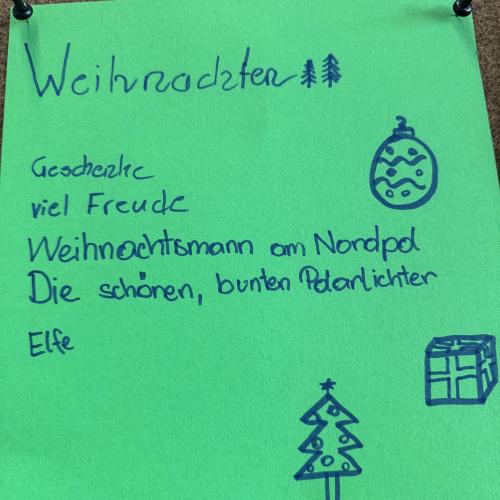 Weihnachten
Geschenke
viel Freude
Weihnachtsmann am Nordpol
Die schönen, bunten Polarlichter
Elfe